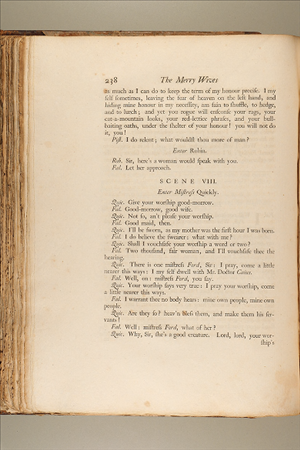 238 The Merry Wives
as much as I can do to keep the term of my honour precise. I my
self sometimes, leaving the fear of heaven on the left hand, and
hiding mine honour in my necessity, am fain to shuffle, to hedge,
and to lurch; and yet you rogue will ensconse your rags, your
cat-a-mountain looks, your red-lettice phrases, and your bull-
baiting oaths, under the shelter of your honour! you will not do
it, you!
Pist. I do relent; what wouldst thou more of man?
Enter Robin.
Rob. Sir, here's a woman would speak with you.
Fal. Let her approach.
SCENE VIII.
Enter Mistress Quickly.
Quic. Give your worship good-morrow.
Fal. Good-morrow, good wife.
Quic. Not so, an't please your worship.
Fal. Good maid, then.
Quic. I'll be sworn, as my mother was the first hour I was born.
Fal. I do believe the swearer: what with me?
Quic. Shall I vouchsafe your worship a word or two?
Fal. Two thousand, fair woman, and I'll vouchsafe thee the
hearing.
Quic. There is one mistress Ford, Sir: I pray, come a little
nearer this ways: I my self dwell with Mr. Doctor Caius.
Fal. Well, on: mistress Ford, you say.
Quic. Your worship says very true: I pray your worship, come
a little nearer this ways.
Fal. I warrant thee no body hears: mine own people, mine own
people.
Quic. Are they so? heav'n bless them, and make them his ser-
vants!
Fal. Well: mistress Ford, what of her?
Quic. Why, Sir, she's a good creature. Lord, lord, your wor-
ship's